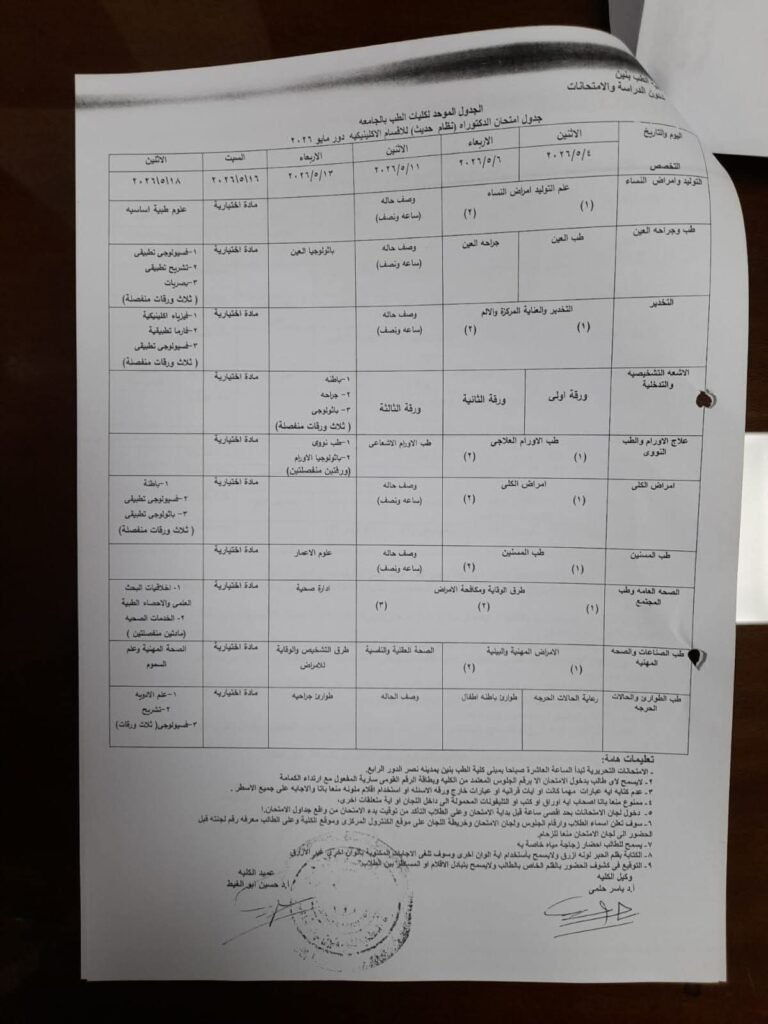 الطب بنين
شئون الدراسة والامتحانات
الجدول الموحد لكليات الطب بالجامعه
جدول امتحان الدكتوراه (نظام حديث) للاقسام الاكلينيكيه دور مايو ٢٠٢٦
اليوم والتاريخ التخصص | الاثنين ٢٠٢٦/٥/٤ | الاربعاء ٢٠٢٦/٥/٦ | الاثنين ٢٠٢٦/٥/١١ | الاربعاء ٢٠٢٦/٥/١٣ | السبت ٢٠٢٦/٥/١٦ | الاثنين ٢٠٢٦/٥/١٨
التوليد وامراض النساء | علم التوليد امراض النساء (١) (٢) | وصف حاله (ساعه ونصف) | مادة اختيارية | علوم طبية اساسيه
طب وجراحه العين | طب العين | جراحه العين | وصف حاله (ساعه ونصف) | باثولوجيا العين | مادة اختيارية | ١-فسيولوجى تطبيقى ٢-تشريح تطبيقى ٣-بصريات ( ثلاث ورقات منفصلة)
التخدير | التخدير والعناية المركزة والالم (١) (٢) | وصف حاله (ساعه ونصف) | مادة اختيارية | ١-فيزياء اكلينيكية ٢-فارما تطبيقية ٣-فسيولوجى تطبيقى ( ثلاث ورقات منفصلة)
الاشعه التشخيصيه والتدخلية | ورقة اولى | ورقة الثانية | ورقة الثالثة | ١-باطنه ٢- جراحه ٣- باثولوجى ( ثلاث ورقات منفصلة) | مادة اختيارية
علاج الاورام والطب النووى | طب الاورام العلاجي (١) (٢) | طب الاورام الاشعاعى | ١-طب نووى ٢-باثولوجيا الاورام (ورقتين منفصلتين) | مادة اختيارية
امراض الكلى | امراض الكلى (١) (٢) | وصف حاله (ساعه ونصف) | مادة اختيارية | ١-باطنة ٢-فسيولوجى تطبيقى ٣- باثولوجى تطبيقى ( ثلاث ورقات منفصلة)
طب المسنين | طب المسنين (١) (٢) | وصف حاله (ساعه ونصف) | علوم الاعمار | مادة اختيارية
الصحه العامه وطب المجتمع | طرق الوقاية ومكافحة الامراض (١) (٢) (٣) | ادارة صحية | مادة اختيارية | ١- اخلاقيات البحث العلمى والاحصاء الطبية ٢- الخدمات الصحيه (مادتين منفصلتين )
طب الصناعات والصحه المهنيه | الامراض المهنية والبيئية (١) (٢) | الصحة العقلية والنفسية | طرق التشخيص والوقاية للامراض | مادة اختيارية | الصحة المهنية وعلم السموم
طب الطوارئ والحالات الحرجه | رعاية الحالات الحرجه | طوارئ باطنه اطفال | وصف الحاله | طوارئ جراحيه | مادة اختيارية | ١-علم الادويه ٢-تشريح ٣-فسيولوجى( ثلاث ورقات)
تعليمات هامة:
- الامتحانات التحريرية تبدأ الساعة العاشرة صباحا بمبنى كلية الطب بنين بمدينه نصر الدور الرابع.
٢- لايسمح لاى طالب بدخول الامتحان الا برقم الجلوس المعتمد من الكليه وبطاقة الرقم القومى سارية المفعول مع ارتداء الكمامة
٣- عدم كتابه ايه عبارات مهما كانت او ايات قرانيه او عبارات خارج ورقه الاسئله او استخدام اقلام ملونه منعا باتا والاجابه على جميع الاسطر.
٤- ممنوع منعا باتا اصحاب ايه اوراق او كتب او التليفونات المحمولة الى داخل اللجان او اية متعلقات اخرى.
٥- دخول لجان الامتحانات بحد اقصى ساعة قبل بداية الامتحان وعلى الطلاب التأكد من توقيت بدء الامتحان من واقع جداول الامتحان.
٦- سوف تعلن اسماء الطلاب وارقام الجلوس ولجان الامتحان وخريطة اللجان على موقع الكنترول المركزى وموقع الكلية وعلى الطالب معرفه رقم لجنته قبل
الحضور الى لجان الامتحان منعا للزحام.
٧- يسمح للطالب احضار زجاجة مياه خاصة به
٨- الكتابة بقلم الحبر لونه ازرق ولايسمح بأستخدام اية الوان اخرى وسوف تلغى الاجابات المكتوبة بالوان اخرى غير الازرق
٩- التوقيع فى كشوف الحضور بالقلم الخاص بالطالب ولايسمح بتبادل الاقلام او المساطر بين الطلاب.
وكيل الكليه
أ.د ياسر حلمى
عميد الكليه
أ.د حسين ابو الغيط